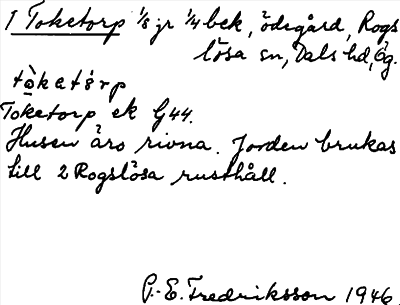 1 Toketorp 1/8 jr 1/4 bek, ödegård, Rogs
lösa sn, Dals hd, Ög.
tòk​etårp
Toketorp ek G44.
Husen äro rivna. Jorden brukas
till 2 Rogslösa rusthåll.
G.-E. Fredriksson 1946.